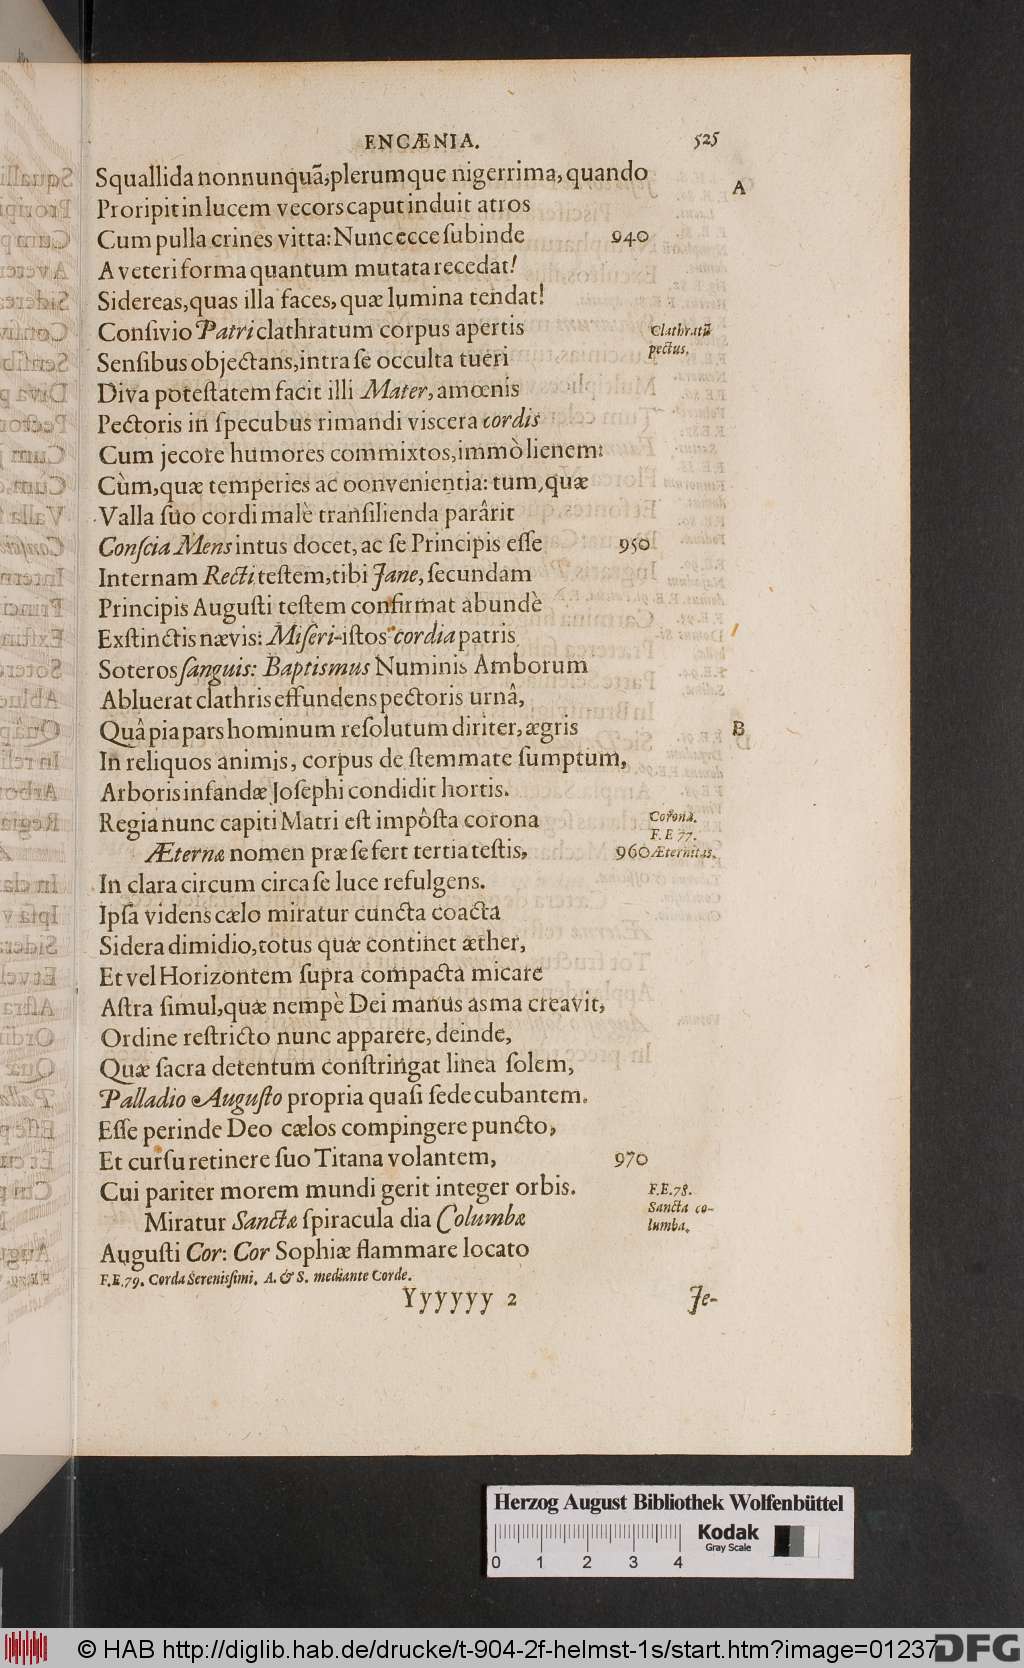 ENCÆNIA. 525
Squallida nonnunquã, plerumque nigerrima, quando
A
Proripit in lucem vecors caput induit atros
Cum pulla crines vitta: Nunc ecce ſubinde 940
A veteri forma quantum mutata recedat!
Sidereas, quas illa faces, quæ lumina tendat!
Conſivio Patri clathratum corpus apertis Clathratũ
Senſibus objectans, intra ſe occulta tueri pectus.
Diva poteſtatem facit illi Mater, amœnis
Pectoris in ſpecubus rimandi viscera cordis
Cum jecore humores commixtos, immò lienem:
Cùm, quæ temperies ac oonvenientia: tum, quæ
Valla ſuo cordi malè tranſilienda parârit
Conſcia Mens intus docet, ac ſe Principis eſſe 950
Internam Recti teſtem, tibi Jane, ſecundam
Principis Auguſti teſtem confirmat abundè
Exſtinctis nævis: Miſeri-iſtos cordia patris
Soteros ſanguis: Baptismus Numinis Amborum
Abluerat clathris effundens pectoris urnâ,
Quâ pia pars hominum reſolutum diriter, ægris B
In reliquos animis, corpus de ſtemmate ſumptum,
Arboris infandæ Joſephi condidit hortis.
Regia nunc capiti Matri eſt impôſta corona Corona.
F. E 77.
Æternæ nomen præ ſe fert tertia teſtis, 960 Æternitas.
In clara circum circa ſe luce refulgens.
Ipſa videns cælo miratur cuncta coacta
Sidera dimidio, totus quæ continet æther,
Et vel Horizontem ſupra compacta micare
Aſtra ſimul, quæ nempè Dei manus asma creavit,
Ordine reſtricto nunc apparere, deinde,
Quæ ſacra detentum conſtringat linea ſolem,
Palladio Auguſto propria quaſi ſede cubantem.
Eſſe perinde Deo cælos compingere puncto,
Et curſu retinere ſuo Titana volantem, 970
Cui pariter morem mundi gerit integer orbis. F.E.78.
Sancta co-
Miratur Sanctæ ſpiracula dia Columbæ lumba.
Auguſti Cor: Cor Sophiæ flammare locato
F.E.79. Corda Sereniſſimi. A. & S. mediante Corde.
Yyyyyy 2 Je-
Herzog August Bibliothek Wolfenbüttel
Kodak
Gray Scale
0 1 2 3 4
© HAB http://diglib.hab.de/drucke/t-904-2f-helmst-1s/start.htm?image=01237
DFG